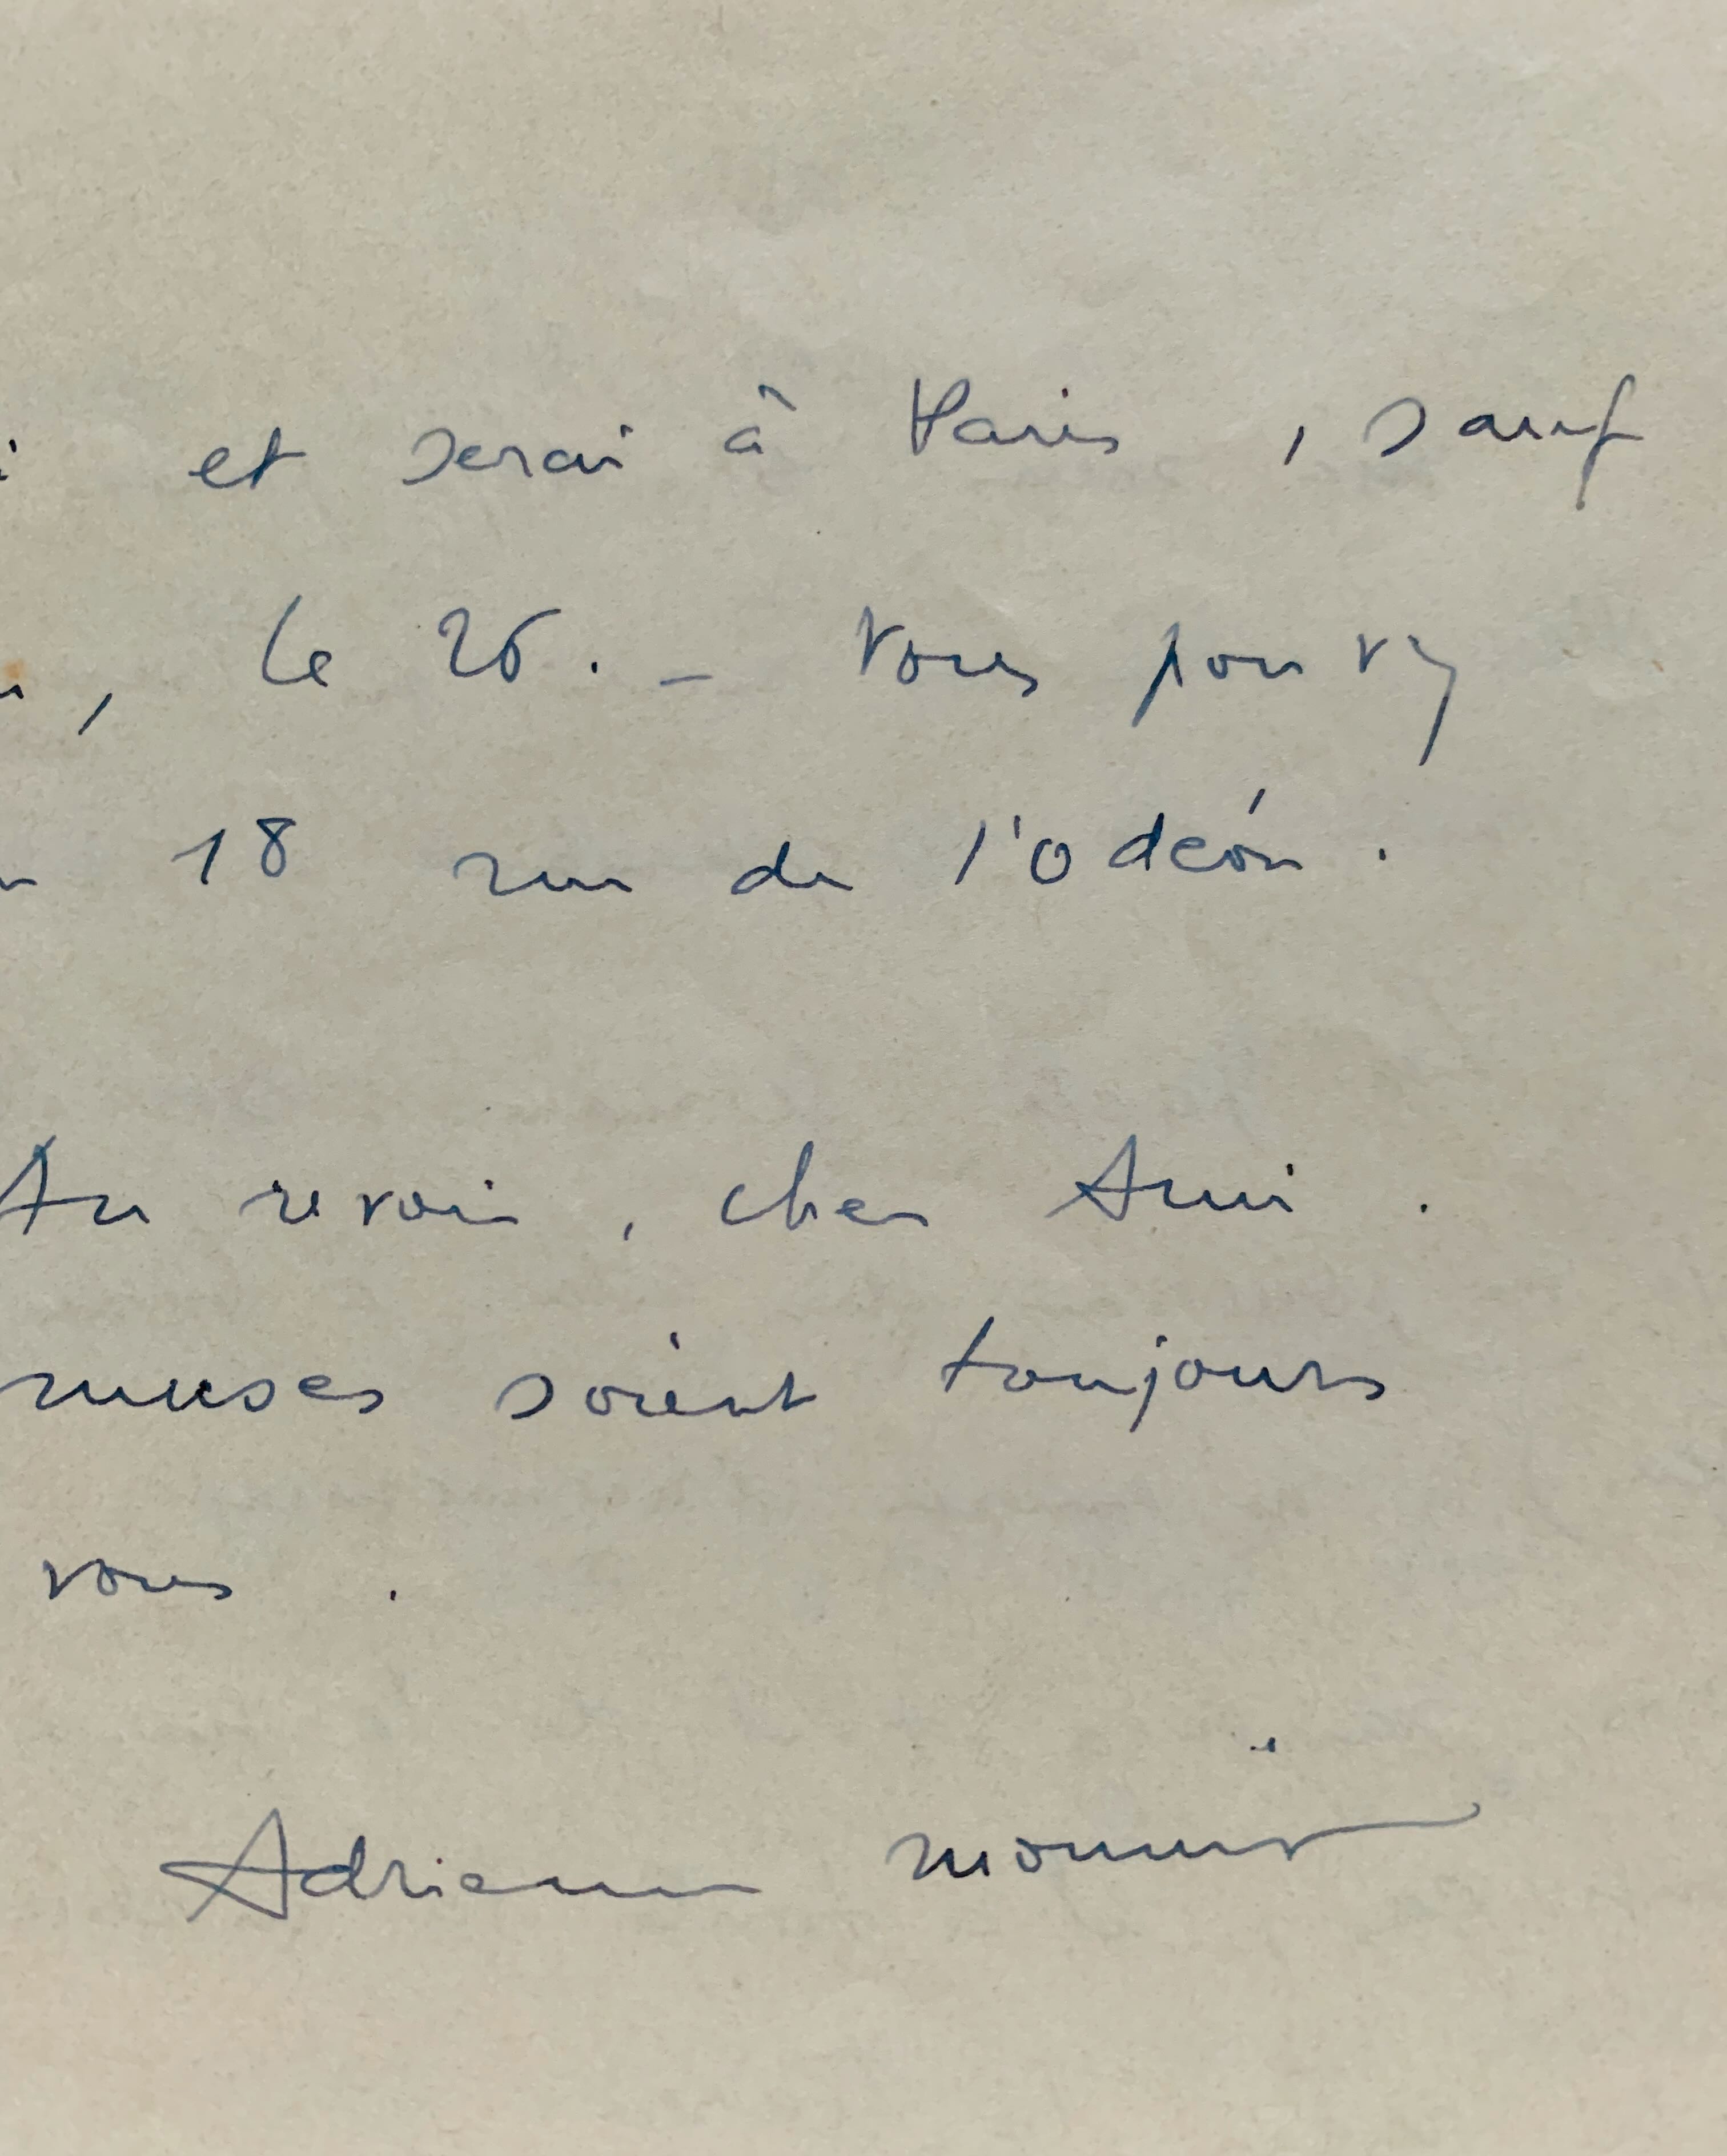 et serai à Paris, sauf
, le 26. – Vous pouvez
18 rue de l'Odéon.
Au revoir, cher Ami.
muses soient toujours
vous.
Adrienne Monnier